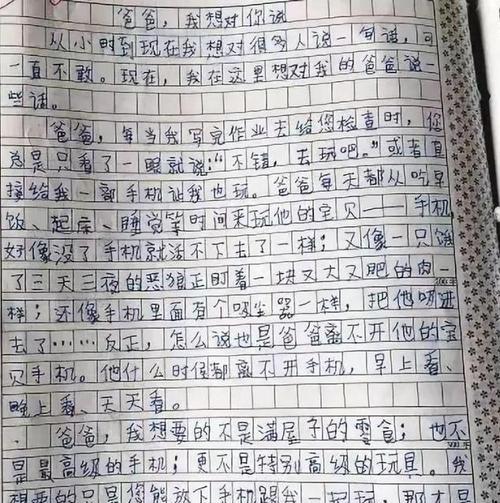 爸爸，我想对你说
从小时到现在我想对很多人说一句话，可
一直不敢。现在，我在这里想对我的爸爸说一
些话。
爸爸，每当我写完作业去给您检查时，您
总是只看了一眼就说：“不错，去玩吧。”或者直
接给我一部手机让我也玩。爸爸每天都从吃早
饭、起床、睡觉等时间来玩他的宝贝——手机
好像没了手机就活不下去了一样；又像一只饿
了三天三夜的恶狼正盯着一块又大又肥的肉一
样；还像手机里面有个吸尘器一样，把他吸进
去了……反正，怎么说也是爸爸离不开他的宝
贝手机。他什么时候都离不开手机，早上看、
晚上看、天天看。
爸爸，我想要的不是满屋子的零食；也不
是最高级的手机；更不是特别高级的玩具。我
想要的只是您能放下手机跟我一起玩，那才是